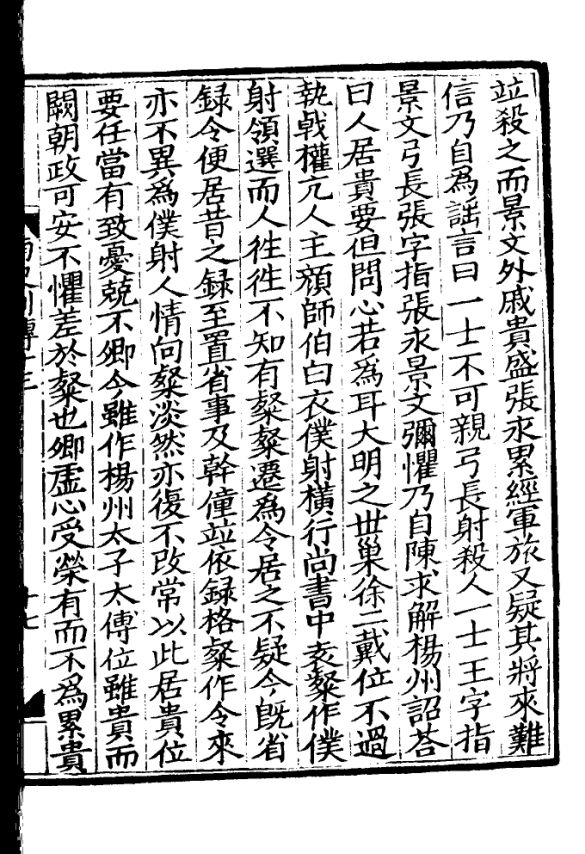 竝殺之而景文外戚貴盛張永累經軍旅又疑其將來難
信乃自爲謡言曰一士不可親弓長射殺人一士王字指
景文弓長張字指張永景文彌懼乃自陳求解楊州詔荅
曰人居貴要但問心若爲耳大明之世巢徐二戴位不過
執戟權亢人主顔師伯白衣僕射橫行尚書中袁粲作僕
射領選而人徃徃不知有粲粲遷爲令居之不疑今旣省
録令便居昔之録至置省事及幹僮竝依録格粲作令來
亦不異爲僕射人情向粲淡然亦復不改常以此居貴位
要任當有致憂兢不卿今雖作楊州太子太傅位雖貴而
闕朝政可安不懼差於粲也卿虛心受榮有而不爲累貴
南史列傳十三
十七